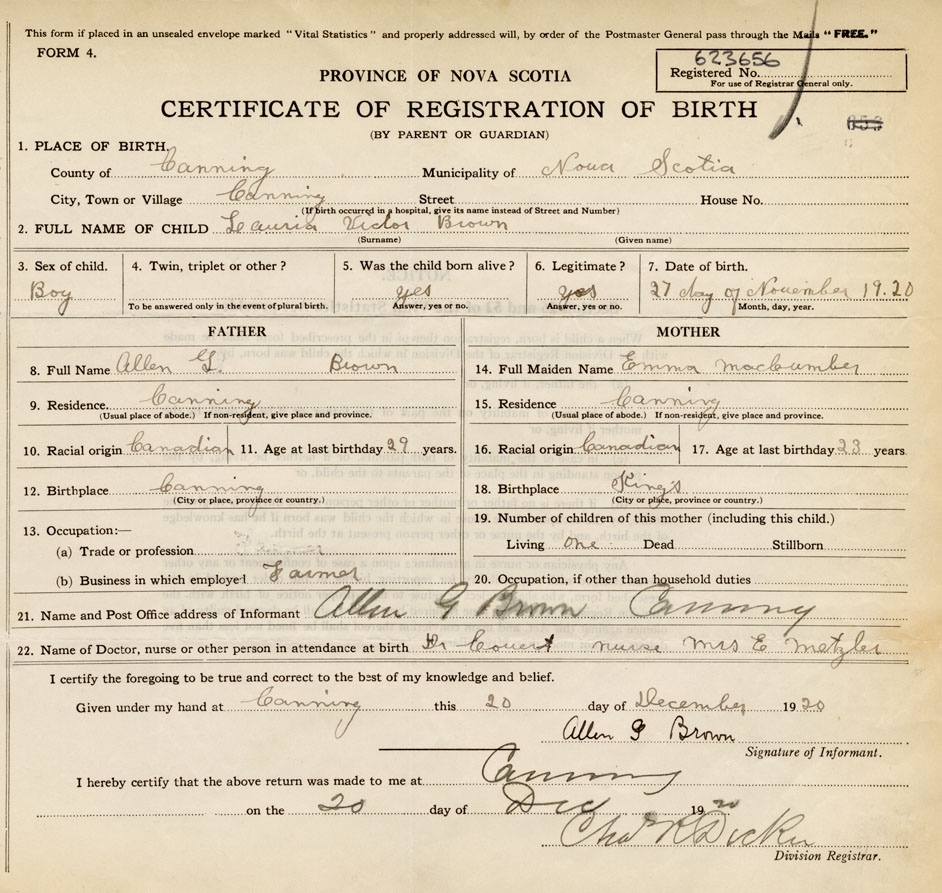 This form if placed in an unsealed envelope marked "Vital Statistics" and properly addressed will, by order of the Postmaster General pass through the Mails "FREE."
FORM 4.
623656
Registered No.
For use of Registrar General only.
PROVINCE OF NOVA SCOTIA
CERTIFICATE OF REGISTRATION OF BIRTH
(BY PARENT OR GUARDIAN)
1. PLACE OF BIRTH.
County of Canning Municipality of Nova Scotia
City, Town or Village Canning Street House No.
(If birth occurred in a hospital, give its name instead of Street and Number)
2. FULL NAME OF CHILD Victor Brown
(Surname) (Given name)
3. Sex of child. 4. Twin, triplet or other? 5. Was the child born alive? 6. Legitimate? 7. Date of birth.
Boy yes yes 27 day of November 1920
To be answered only in the event of plural birth. Answer, yes or no. Answer, yes or no. Month, day, year.
FATHER MOTHER
8. Full Name Allen G. Brown 14. Full Maiden Name Emma MacCumber
9. Residence. Canning 15. Residence Canning
(Usual place of abode.) If non-resident, give place and province. (Usual place of abode.) If non-resident, give place and province.
10. Racial origin Canadian 11. Age at last birthday 29 years. 16. Racial origin Canadian 17. Age at last birthday 23 years
12. Birthplace Canning 18. Birthplace Kings
(City or place, province or country.) (City or place, province or country.)
13. Occupation:— 19. Number of children of this mother (including this child.)
(a) Trade or profession Living One Dead Stillborn
(b) Business in which employed Farmer 20. Occupation, if other than household duties
21. Name and Post Office address of Informant Allen G Brown Canning
22. Name of Doctor, nurse or other person in attendance at birth Dr Covert nurse Mrs E Metzler
I certify the foregoing to be true and correct to the best of my knowledge and belief.
Given under my hand at Canning this 20 day of December 1920
Allen G Brown
Signature of Informant.
I hereby certify that the above return was made to me at Canning
on the 20 day of Dec 1920
Division Registrar.